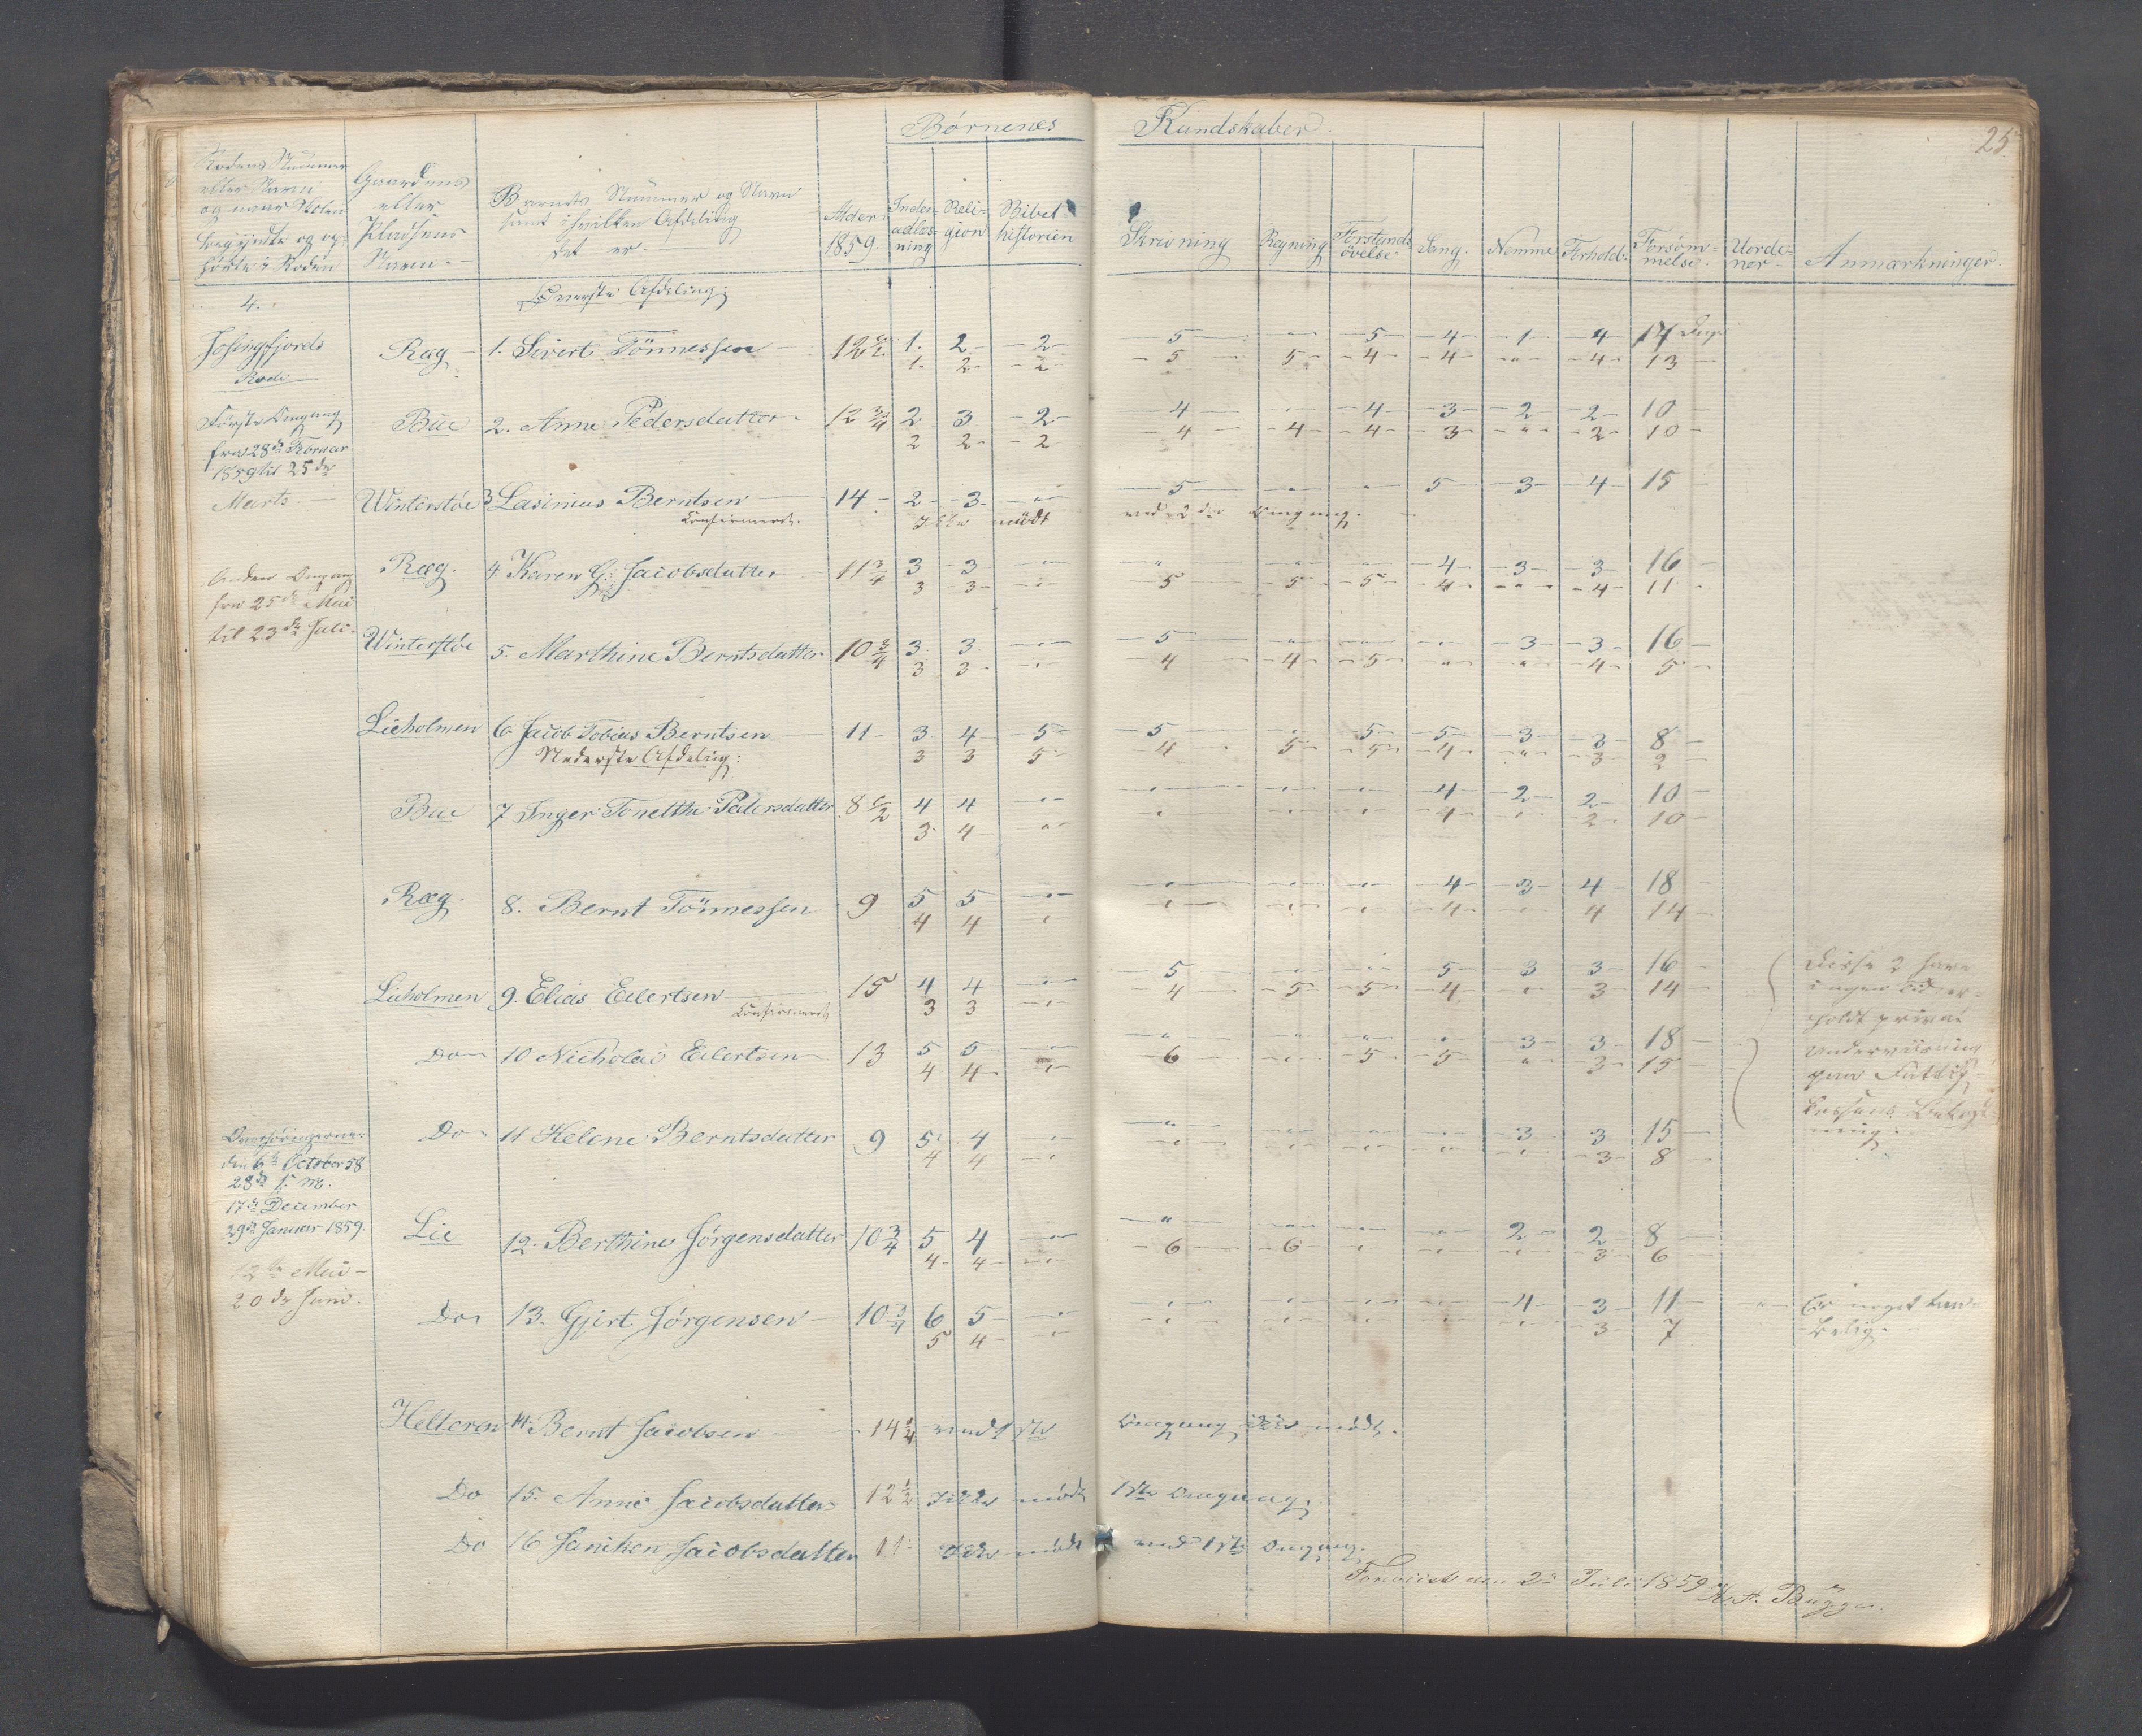 Børnenes Kundskaber.
25.
Rodens Nummer
eller Navn
og naar Skolen
begyndte og op-
hørte i Roden
Gaardens
eller
Pladsens
Navn.
Barnets Nummer og Navn
samt i hvilken Afdeling
det er.
Alder
1859.
Inden-
adlæs-
ning
Reli-
gion
Bibel-
historien
Skrivning
Regning
Forstands
øvelse
Sang.
Nemme
Forhold.
Forsøm-
melse.
Uorde-
ner
Anmærkninger.
4.
Øverste Afdeling:
Jøsingfjords
Rode
Ræg 1. Sivert Tönnessen 12 1/2 1. 2 2 5 " 5 4 1 4 17 Dage
1. 2 2 5 5 4 4 " 4 13
Første Omgang
fra 28de Februar
1859 til 25de
Marts.
Bue 2. Anne Pedersdatter 12 3/4 2 3 2 4 " 4 3 2 2 10
2 2 2 4 4 4 3 " 2 10
Winterstøe 3 Lasinius Berntsen 14 2 3 " 5 " " 5 3 4 15
Confirmeret. Ikke mödt ved 2den Omgang.
Anden Omgang
fra 25de Mai
til 23de Juli.
Ræg. 4. Karen G. Jacobsdatter 11 3/4 3 3 " " " " 4 3 3 16
3 3 " 5 5 5 4 " 4 11
Winterstøe 5. Marthine Berntsdatter 10 3/4 3 3 " 5 " " " 3 3 16
3 3 " 4 4 5 " " 4 5
Lieholmen 6. Jacob Tobias Berntsen 11 3 4 5 5 " 5 5 3 3 8
3 3 5 4 5 5 4 " 3 2
Nederste Afdeling:
Bue 7 Inger Tonette Pedersdatter 8 1/2 4 4 " " " " 4 2 2 10
3 4 " " " " 4 " 2 10
Ræg. 8. Bernt Tönnessen 9 5 5 " " " " 4 3 4 18
4 4 " " " " 4 " 4 14
Lieholmen 9. Elias Eilertsen 15 4 4 " 5 " " 5 3 3 16
Confirmeret 3 3 " 4 5 5 4 " 3 14
Do 10 Nicholai Eilertsen 13 5 5 " " " " " 3 3 18
4 4 " 6 " 5 5 " 3 15
Disse 2 have
ingen Tid er-
holdt privat
Underviisning
paa Fattig-
kassens Bekost-
ning.
Do 11 Helene Berntsdatter 9 5 4 " " " " " 3 3 15
4 4 " " " " " " 3 8
den 6te October 58
28de s. M.
17de December
29de Januar 1859.
12te Mai
20de Juni.
Lie 12. Berthine Jørgensdatter 10 3/4 5 4 " " " " " 2 2 8
4 4 " 6 6 " " " 3 6
Do 13. Gjert Jørgensen 10 3/4 6 5 " " " " " 4 3 11 "
5 4 " " " " " " 3 7
Er noget
Helleren 14. Bernt Jacobsen 14 1/4 ved 1ste Omgang ikke mødt.
Do 15. Anne Jacobsdatter 12 1/2 Ikke mødt 1ste Omgang.
Do 16 Janiken Jacobsdatter 11 Ikke mødt ved 1ste Omgang.
Foreviist den 2 Juli 1859 Bugge.